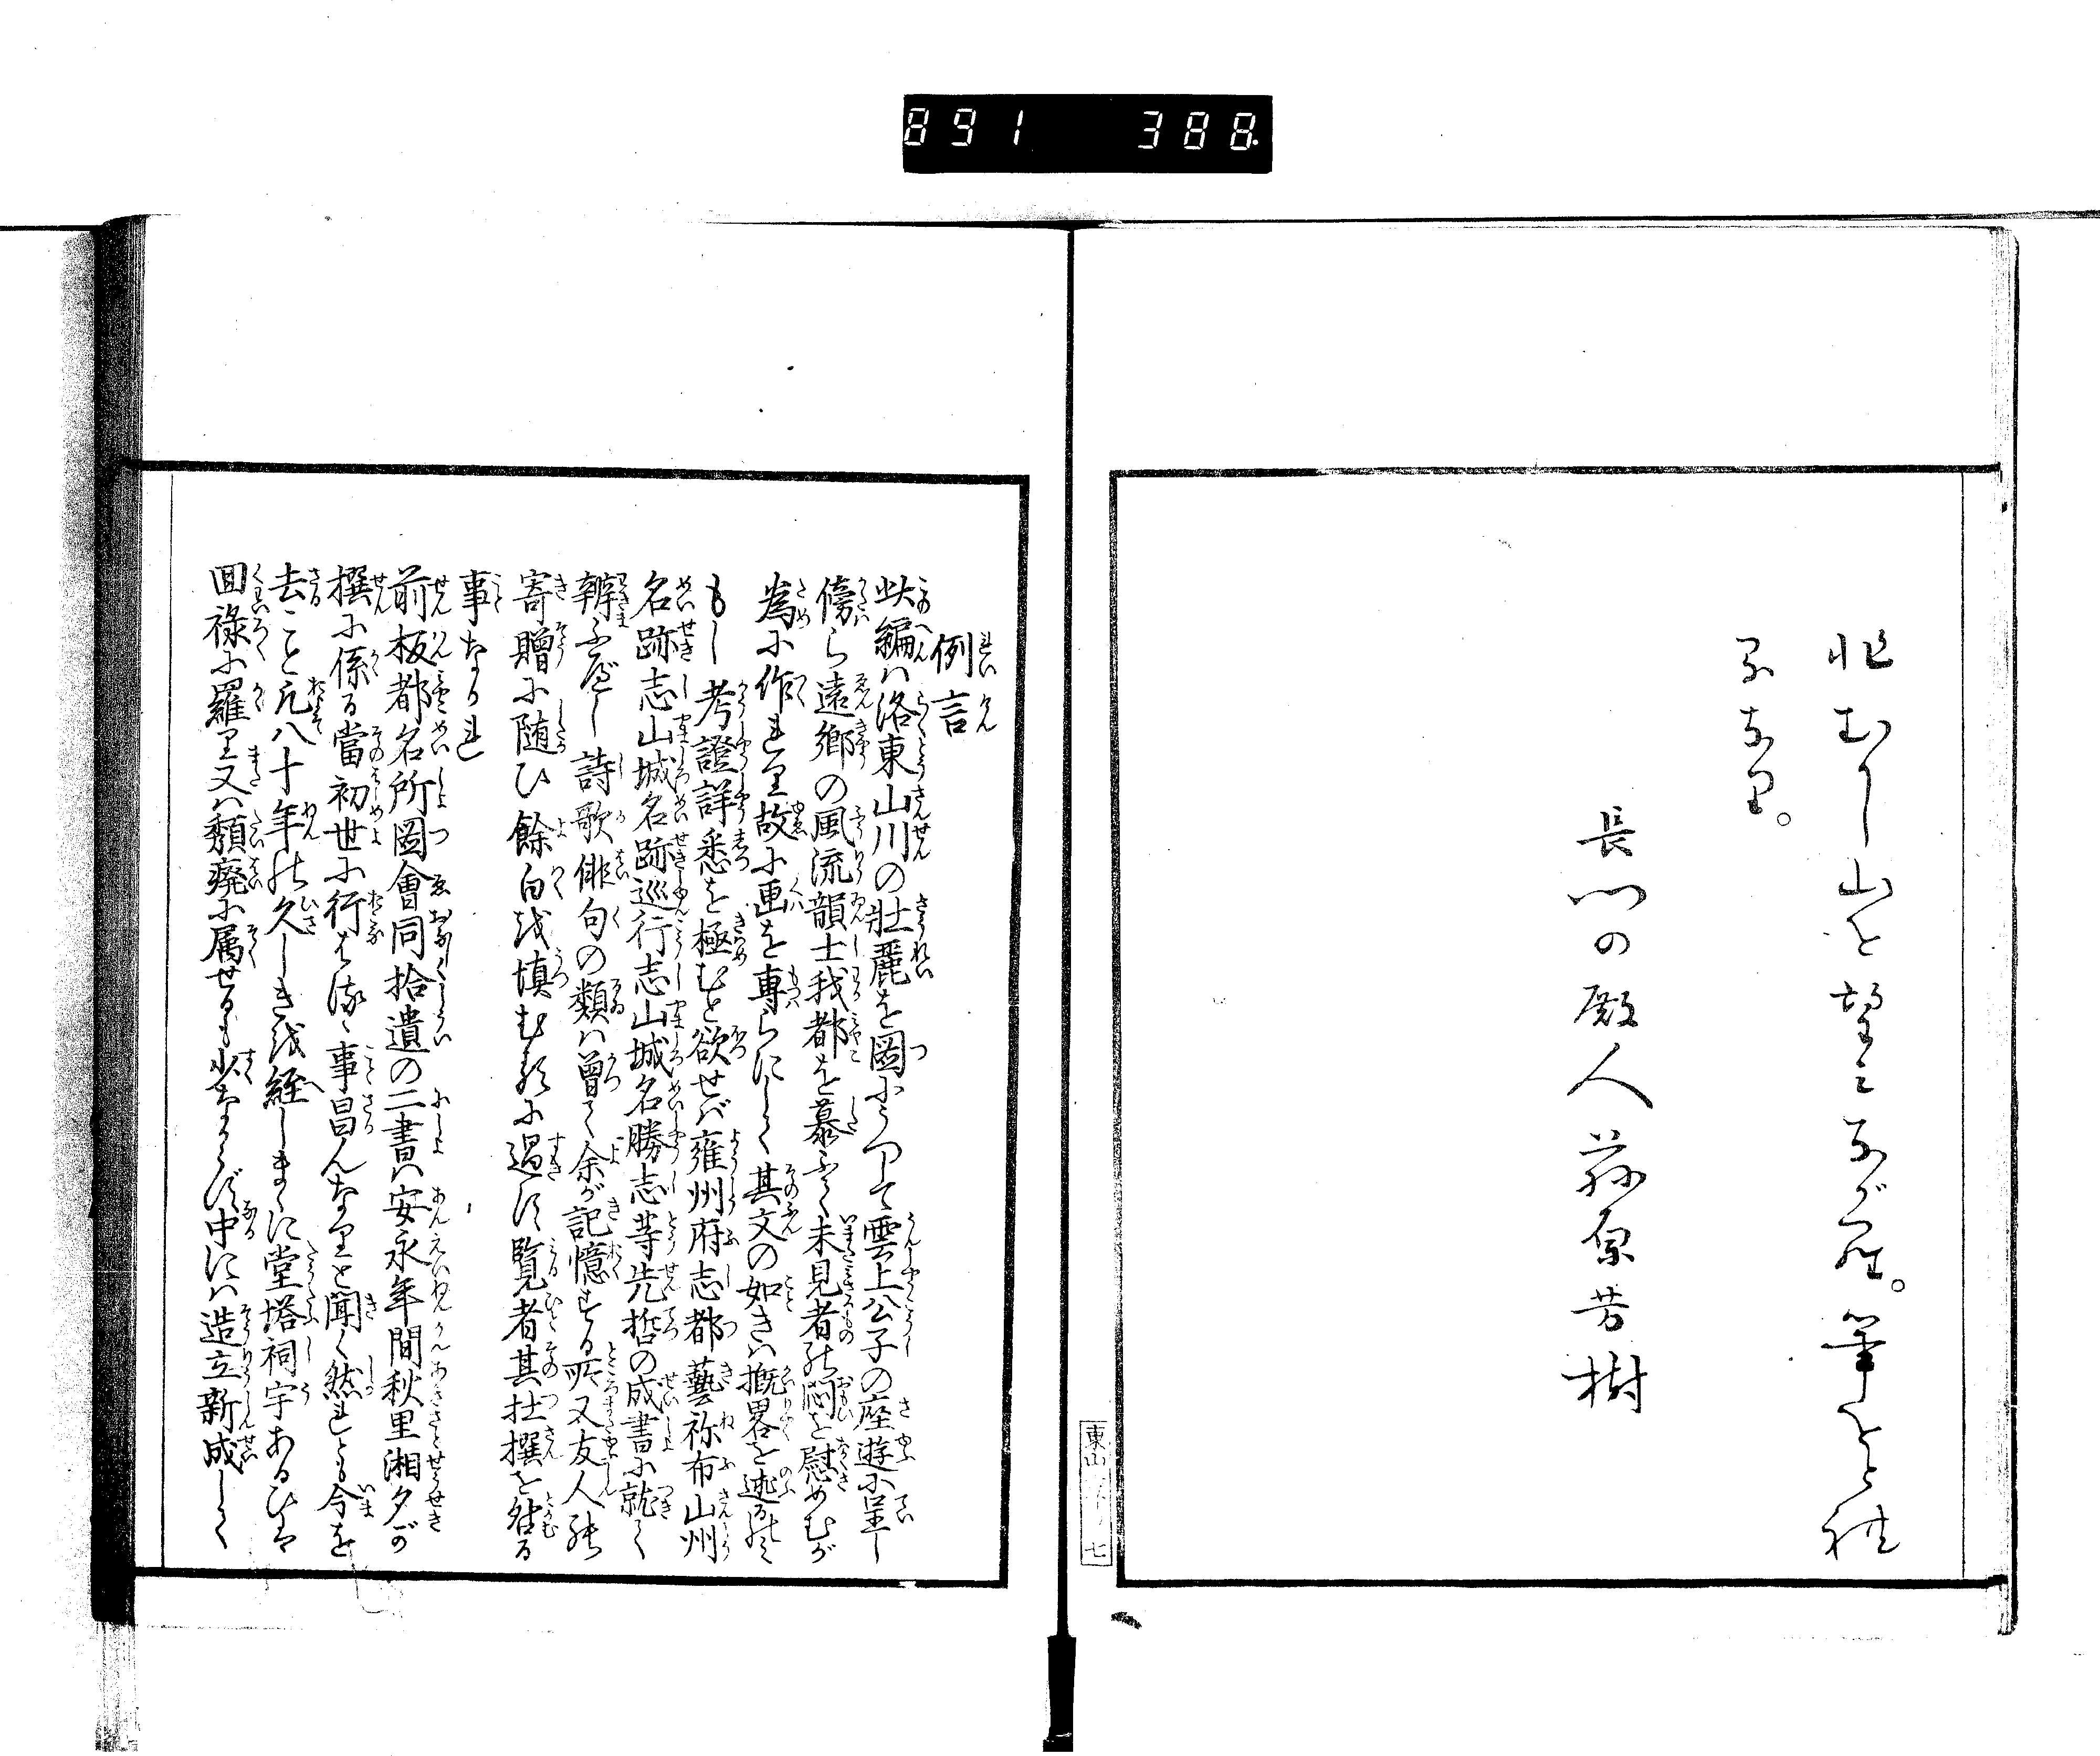 891 388
ひむかし山を望ミながら。筆をとれ
るなり。
長門の殿人 萩原芳樹
東山
七
例言
此編ハ洛東山川の壮麗を圖にうつして雲上公子の座遊に呈し
傍ら遠郷の風流韻士我都を慕ふて未見者の悶を慰めむが
為に作れり故に画を専らにして其文の如きハ概畧を述るのミ
もし考證詳悉を極むと欲せバ雍州府志都藝祢布山州
名跡志山城名跡巡行志山城名勝志等先哲の成書に就て
辨ふべし詩歌俳句の類ハ曽て余が記憶する所又友人の
寄贈に随ひ餘白を填むるに過ず覧者其杜撰を咎る
事なかれ
前板都名所圖會同拾遺の二書ハ安永年間秋里湘夕が
撰に係る當初世に行はるゝ事昌んなりと聞く然れども今を
去こと凡八十年の久しきを経しまゝに堂塔祠宇あるひは
回禄に羅り又ハ頽廃に属せるも少なからず中にハ造立新成して